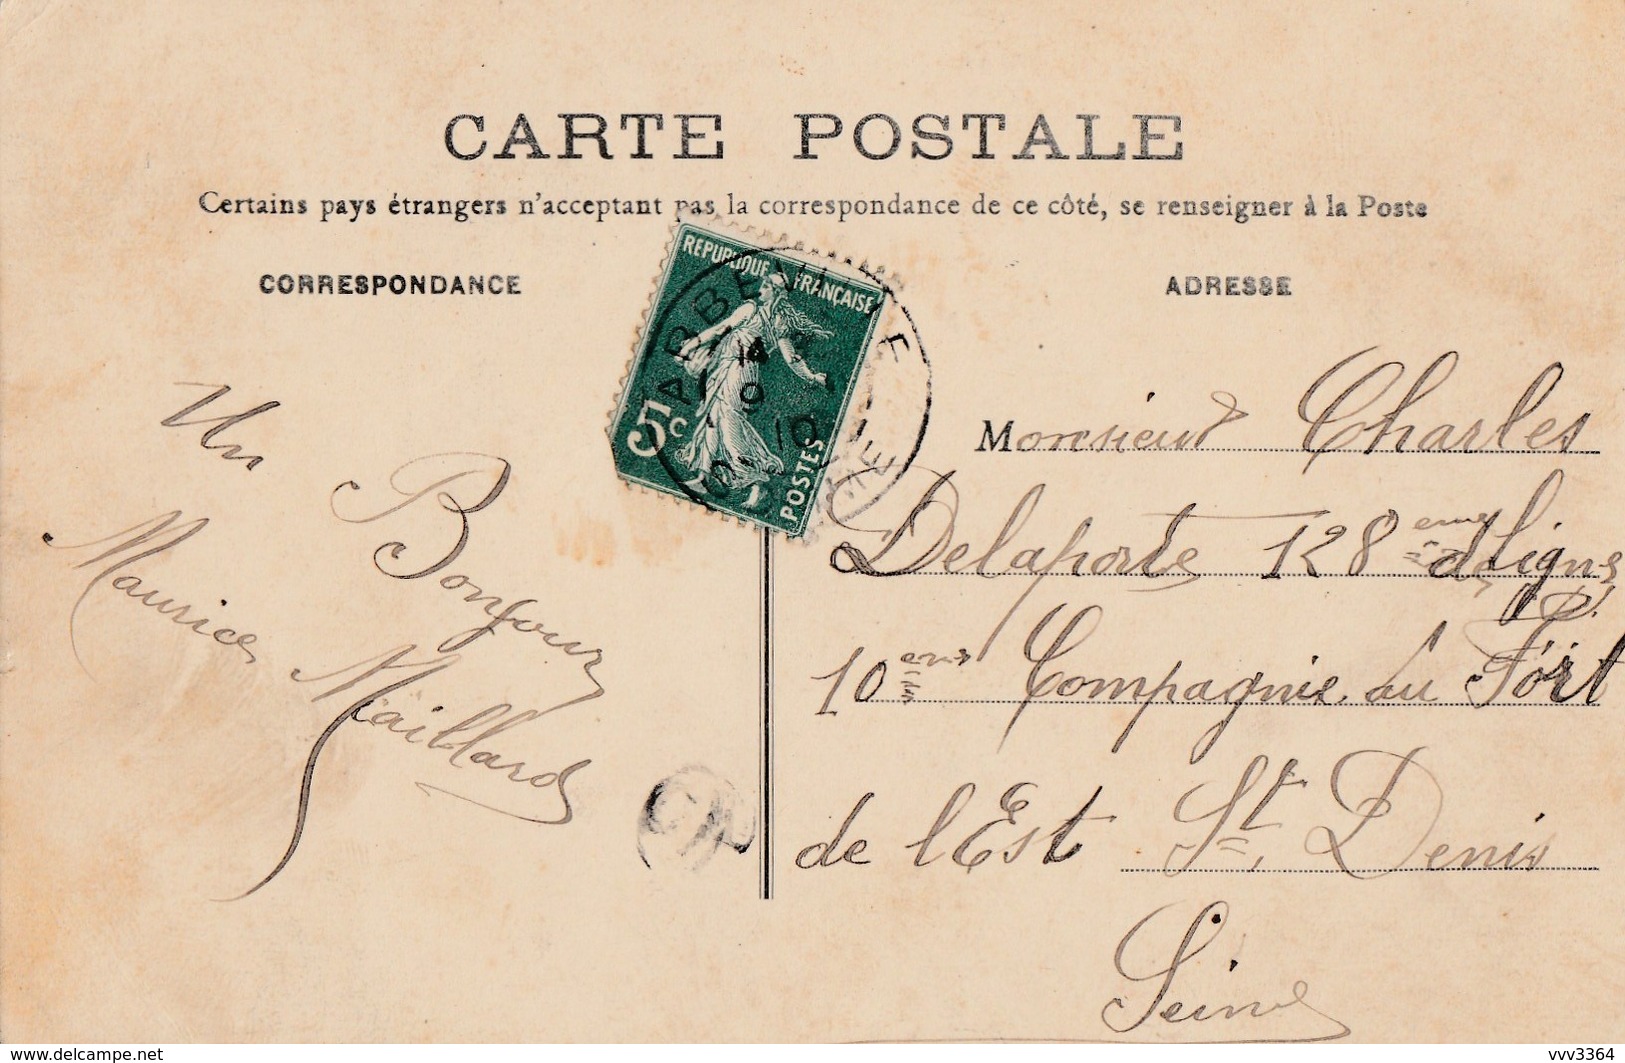 CARTE POSTALE
Certains pays étrangers n'acceptent pas la correspondance de ce côté, se renseigner à la Poste
CORRESPONDANCE
ADRESSE
REPUBLIQUE FRANÇAISE
5c
POSTES
ABBEVILLE
10
SOMME
Un Bonjour
Maurice Maillard
Monsieur Charles
Delaporte 128eme de Ligne
10eme Compagnie au Fort
de l'Est St Denis
Seine
www.delcampe.net
vvv3364